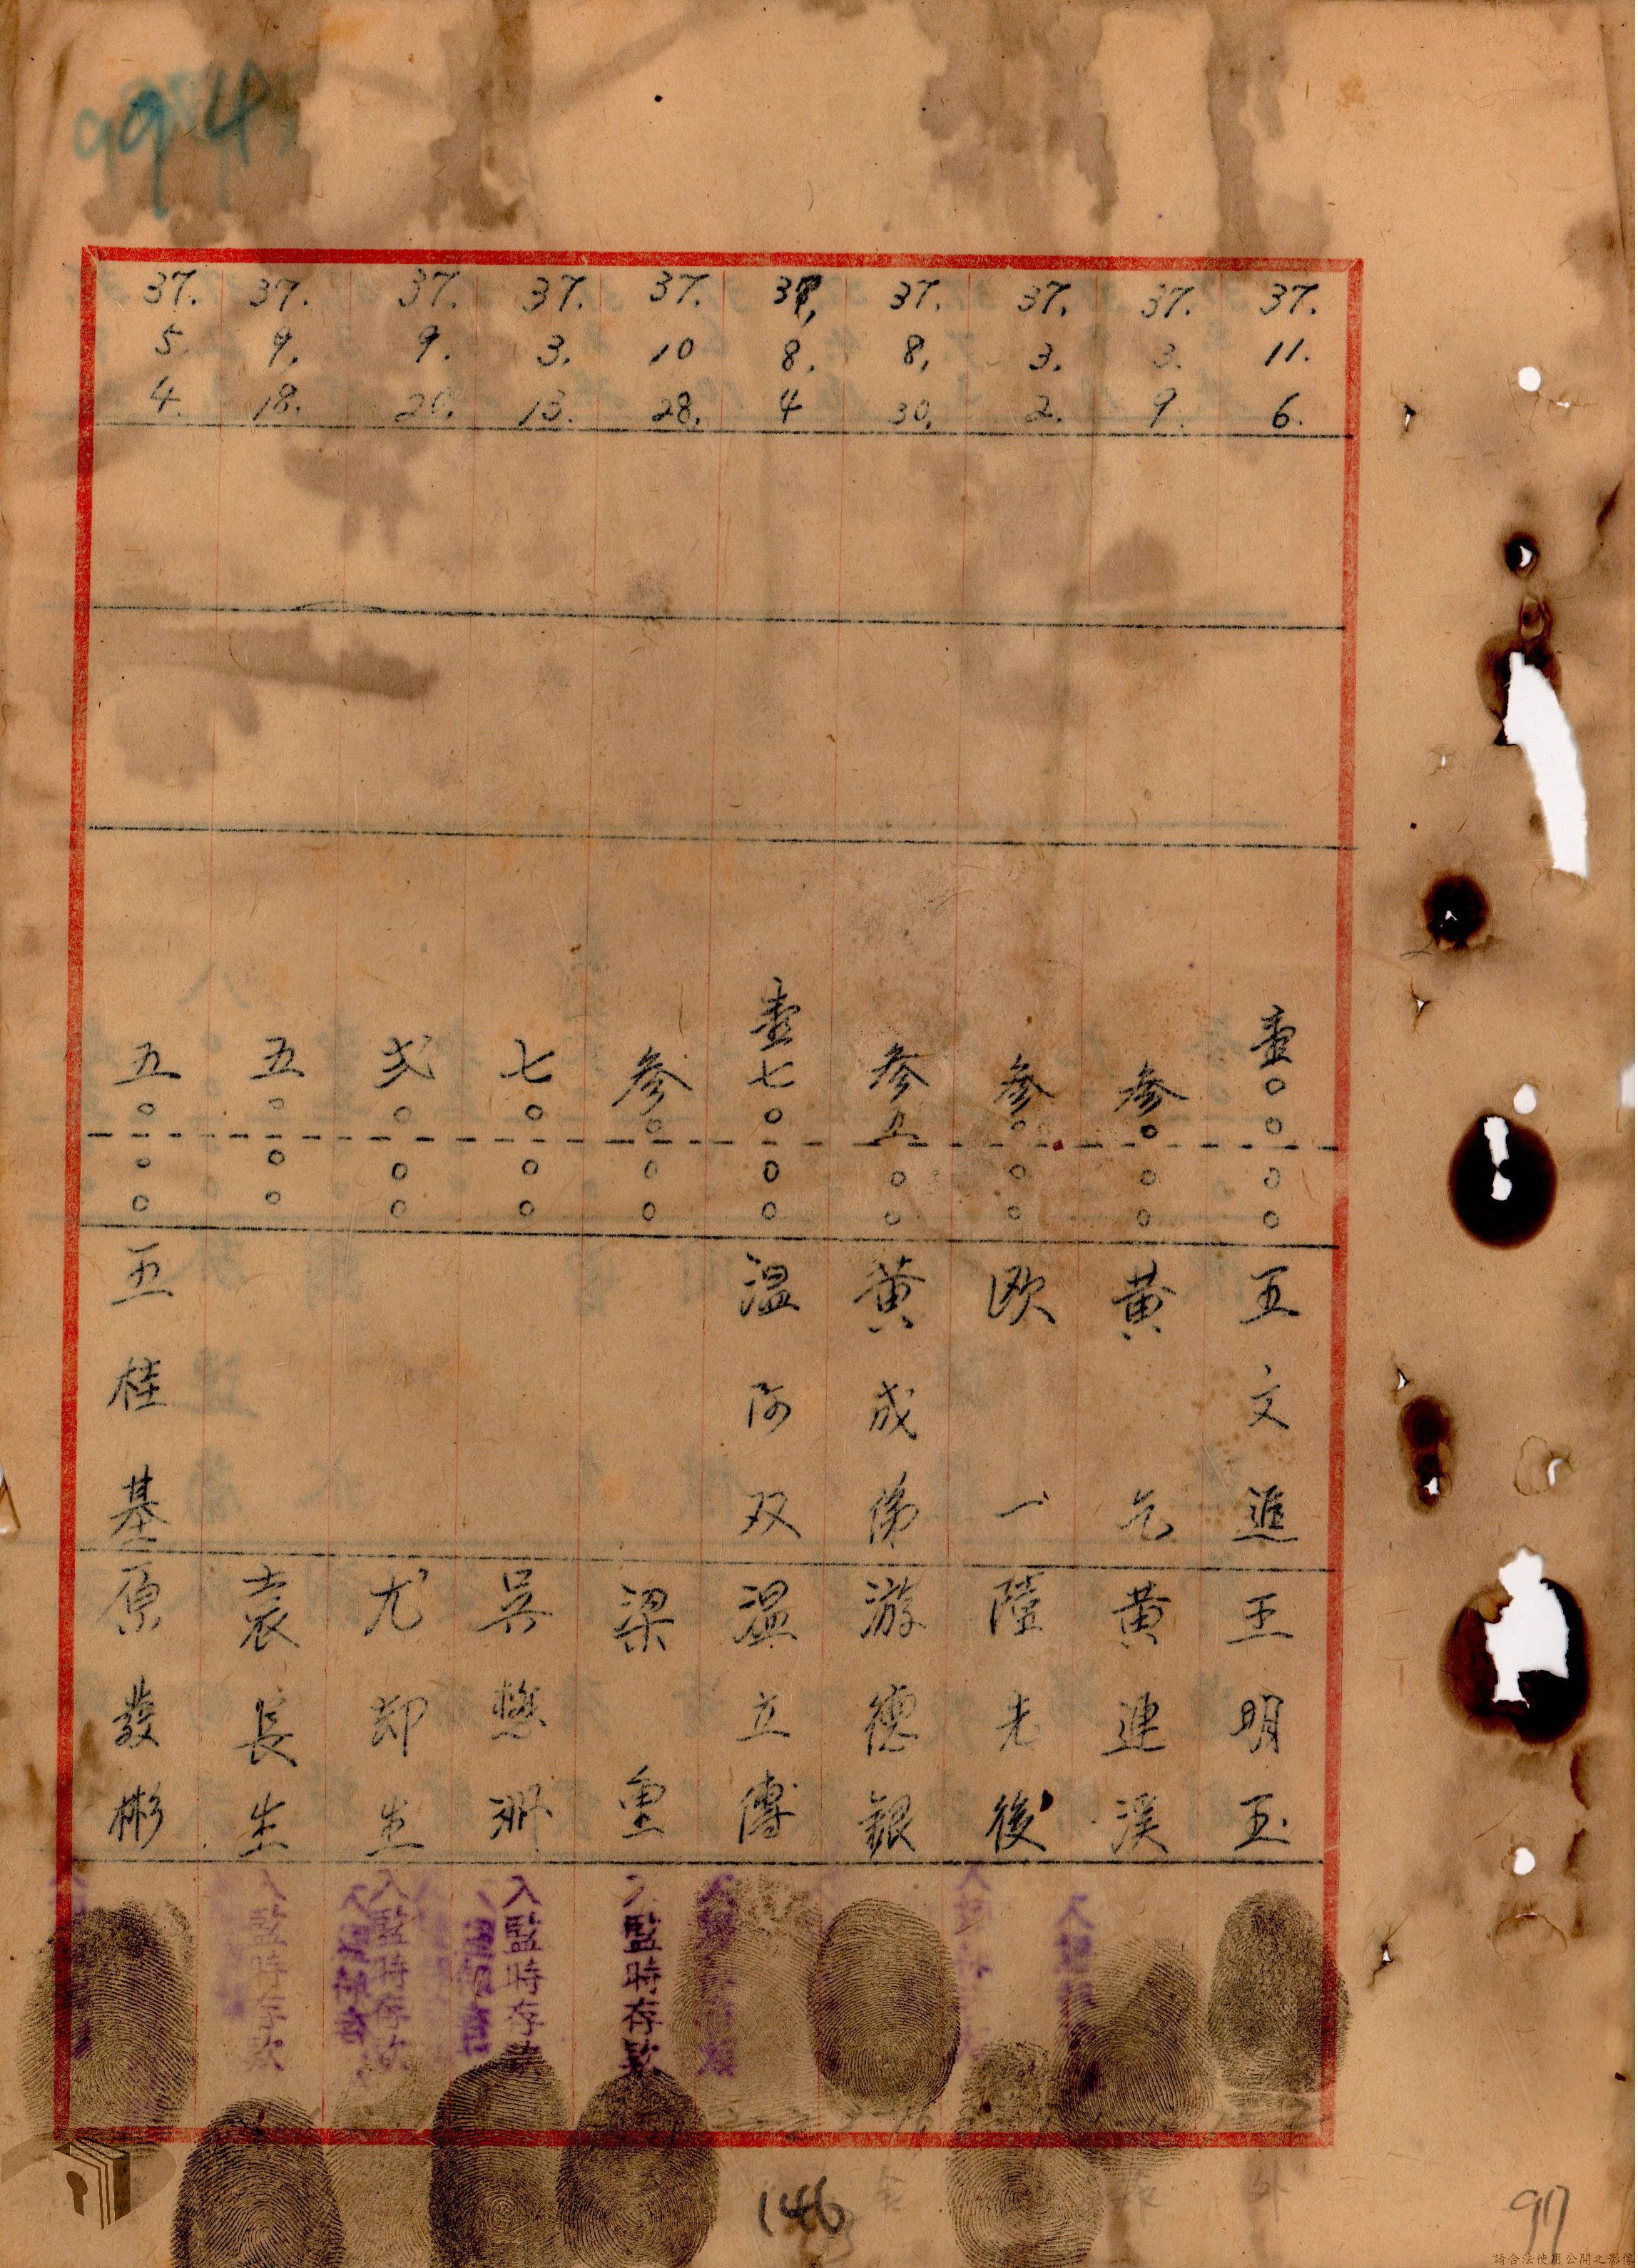 994
37. 11. 6. 壹〇〇〇〇 王文進 王明玉
37. 3. 9. 参〇〇〇 黄 黄連溪
37. 3. 2. 参〇〇〇 欧一 陸先後
37. 8. 30. 参五〇〇 黄成 游德銀
37. 8. 4 壹七〇〇〇 温阿双 温立傳
37. 10 28. 参〇〇〇 梁重 入監時存款
37. 3. 13. 七〇〇〇 吳 入監時存款
37. 9. 20. 弍〇〇〇 尤却生 入監時存款
37. 9. 18. 五〇〇〇 袁長生 入監時存款
37. 5. 4. 五〇〇〇 王桂基 原發彬
146
97
請合法使用公開之影像